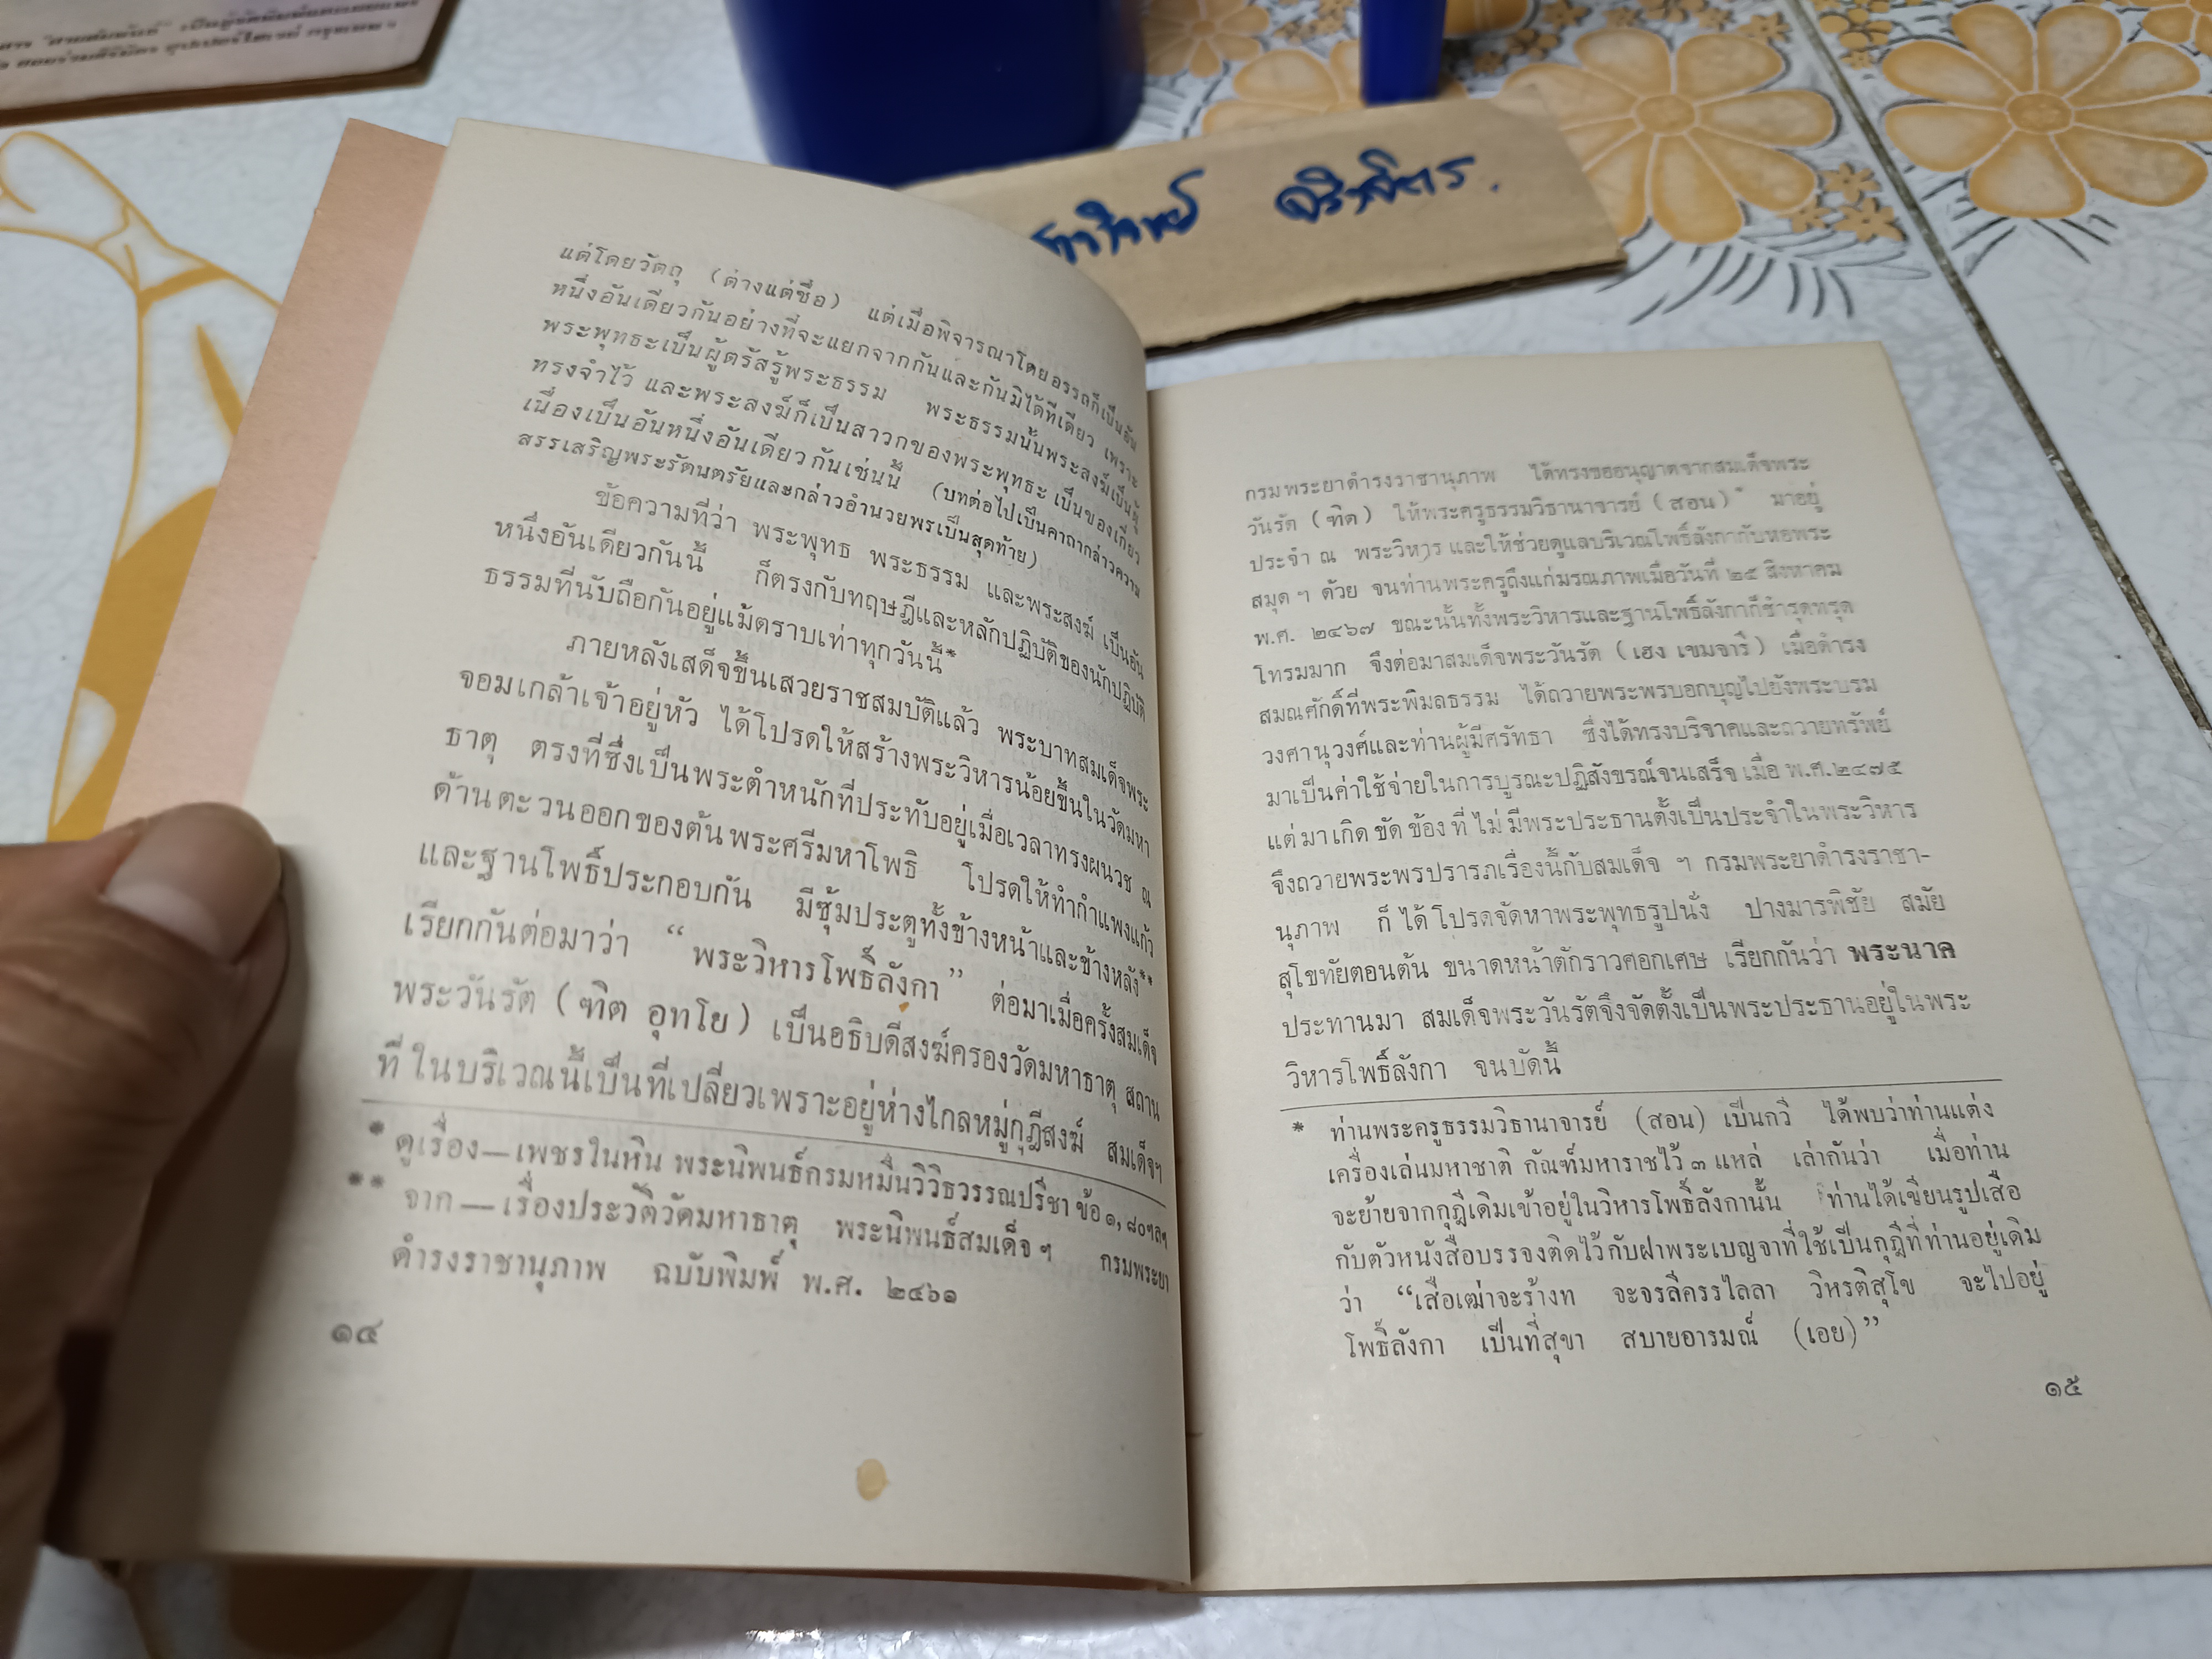 แต่โดยวัตถุ (ต่างแต่ชื่อ) แต่เมื่อพิจารณาโดยอรรถก็เป็นอัน
หนึ่งอันเดียวกันอย่างที่จะแยกจากกันและกันมิได้ทีเดียว เพราะ
พระพุทธะเป็นผู้ตรัสรู้พระธรรม พระธรรมนั้นพระสงฆ์เป็นผู้
ทรงจำไว้ และพระสงฆ์ก็เป็นสาวกของพระพุทธะ เป็นของเกี่ยว
เนื่องเป็นอันหนึ่งอันเดียวกันเช่นนี้ (บทต่อไปเป็นคาถากล่าวความ
สรรเสริญพระรัตนตรัยและกล่าวอำนวยพรเป็นสุดท้าย)
ข้อความที่ว่า พระพุทธ พระธรรม และพระสงฆ์ เป็นอัน
หนึ่งอันเดียวกันนี้ ก็ตรงกับทฤษฎีและหลักปฏิบัติของนักปฏิบัติ
ธรรมที่นับถือกันอยู่แม้ตราบเท่าทุกวันนี้*
ภายหลังเสด็จขึ้นเสวยราชสมบัติแล้ว พระบาทสมเด็จพระ
จอมเกล้าเจ้าอยู่หัว ได้โปรดให้สร้างพระวิหารน้อยขึ้นในวัดมหา
ธาตุ ตรงที่ซึ่งเป็นพระตำหนักที่ประทับอยู่เมื่อเวลาทรงผนวช ณ
ด้านตะวนออกของต้นพระศรีมหาโพธิ โปรดให้ทำกำแพงแก้ว
และฐานโพธิ์ประกอบกัน มีซุ้มประตูทั้งข้างหน้าและข้างหลัง**
เรียกกันต่อมาว่า “พระวิหารโพธิ์ลังกา” ต่อมาเมื่อครั้งสมเด็จ
พระวันรัต (ฑิต อุทโย) เป็นอธิบดีสงฆ์ครองวัดมหาธาตุ สถาน
ที่ในบริเวณนี้เป็นที่เปลี่ยวเพราะอยู่ห่างไกลหมู่กุฎีสงฆ์ สมเด็จฯ
* ดูเรื่อง—เพชรในหิน พระนิพนธ์กรมหมื่นวิวิธวรรณปรีชา ข้อ ๑, ๘๐ฯลฯ
** จาก—เรื่องประวัติวัดมหาธาตุ พระนิพนธ์สมเด็จ ฯ กรมพระยา
ดำรงราชานุภาพ ฉบับพิมพ์ พ.ศ. ๒๔๖๑
๑๔
กรมพระยาดำรงราชานุภาพ ได้ทรงขออนุญาตจากสมเด็จพระ
วันรัต (ฑิต) ให้พระครูธรรมวิธานาจารย์ (สอน)* มาอยู่
ประจำ ณ พระวิหาร และให้ช่วยดูแลบริเวณโพธิ์ลังกากับหอพระ
สมุด ฯ ด้วย จนท่านพระครูถึงแก่มรณภาพเมื่อวันที่ ๒๕ สิงหาคม
พ.ศ. ๒๔๖๗ ขณะนั้นทั้งพระวิหารและฐานโพธิ์ลังกาก็ชำรุดทรุด
โทรมมาก จึงต่อมาสมเด็จพระวันรัต (เฮง เขมจารี) เมื่อดำรง
สมณศักดิ์ที่พระพิมลธรรม ได้ถวายพระพรบอกบุญไปยังพระบรม
วงศานุวงศ์และท่านผู้มีศรัทธา ซึ่งได้ทรงบริจาคและถวายทรัพย์
มาเป็นค่าใช้จ่ายในการบูรณะปฏิสังขรณ์จนเสร็จ เมื่อ พ.ศ.๒๔๗๕
แต่มาเกิดขัดข้องที่ไม่มีพระประธานตั้งเป็นประจำในพระวิหาร
จึงถวายพระพรปรารภเรื่องนี้กับสมเด็จ ฯ กรมพระยาดำรงราชา-
นุภาพ ก็ได้โปรดจัดหาพระพุทธรูปนั่ง ปางมารพิชัย สมัย
สุโขทัยตอนต้น ขนาดหน้าตักราวศอกเศษ เรียกกันว่า พระนาค
ประทานมา สมเด็จพระวันรัตจึงจัดตั้งเป็นพระประธานอยู่ในพระ
วิหารโพธิ์ลังกา จนบัดนี้
* ท่านพระครูธรรมวิธานาจารย์ (สอน) เป็นกวี ได้พบว่าท่านแต่ง
เครื่องเล่นมหาชาติ กัณฑ์มหาราชไว้ ๓ แหล่ เล่ากันว่า เมื่อท่าน
จะย้ายจากกุฎีเดิมเข้าอยู่ในวิหารโพธิ์ลังกานั้น ท่านได้เขียนรูปเสือ
กับตัวหนังสือบรรจงติดไว้กับฝาพระเบญจาที่ใช้เป็นกุฎีที่ท่านอยู่เดิม
ว่า “เสือเฒ่าจะร้างท จะจรลีครรไลลา วิหรติสุโข จะไปอยู่
โพธิ์ลังกา เป็นที่สุขา สบายอารมณ์ (เอย)”
๑๕